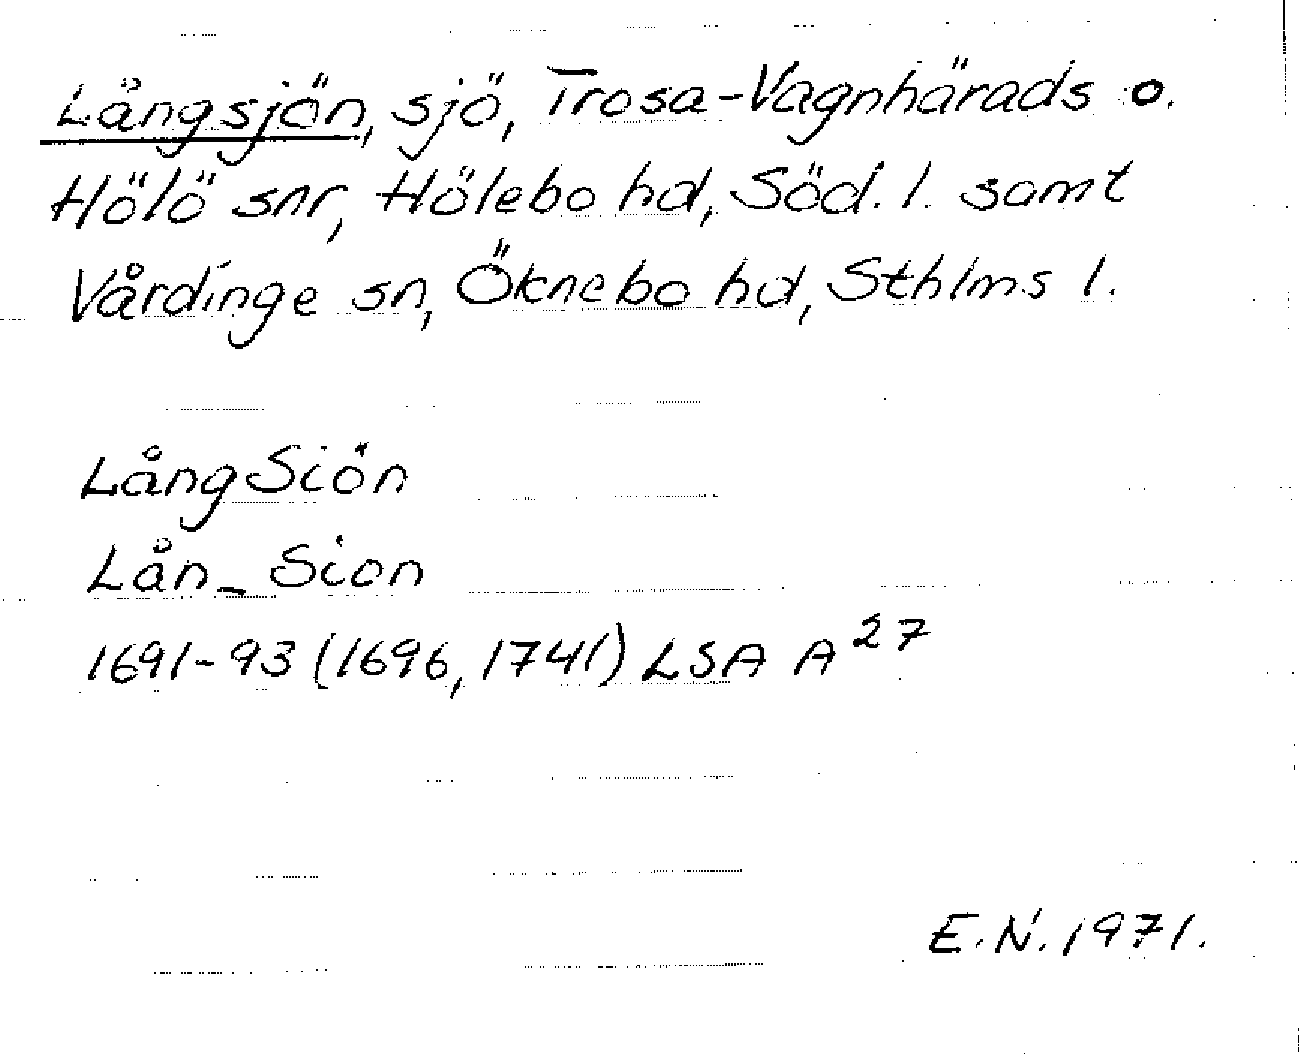 Långsjön, sjö, Trosa-Vagnhärads o.
Hölö snr, Hölebo hd, Söd. l. samt
Vårdinge sn, Öknebo hd, Sthlms l.
LångSiön
Lån_ Sion
1691-93 (1696, 1741) LSA A 27
E.N. 1971.